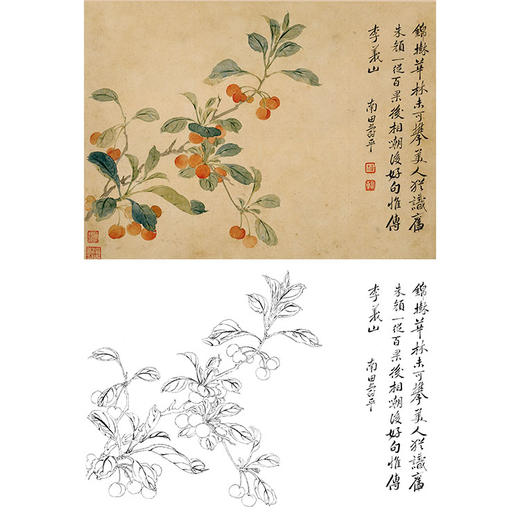 錦樹華林未可攀美人猶識舊
朱顏一從百果後相嘲後好句惟傳
李義山
南田壽平
錦樹華林未可攀美人猶識舊
朱顏一從百果後相嘲後好句惟傳
李義山
南田壽平